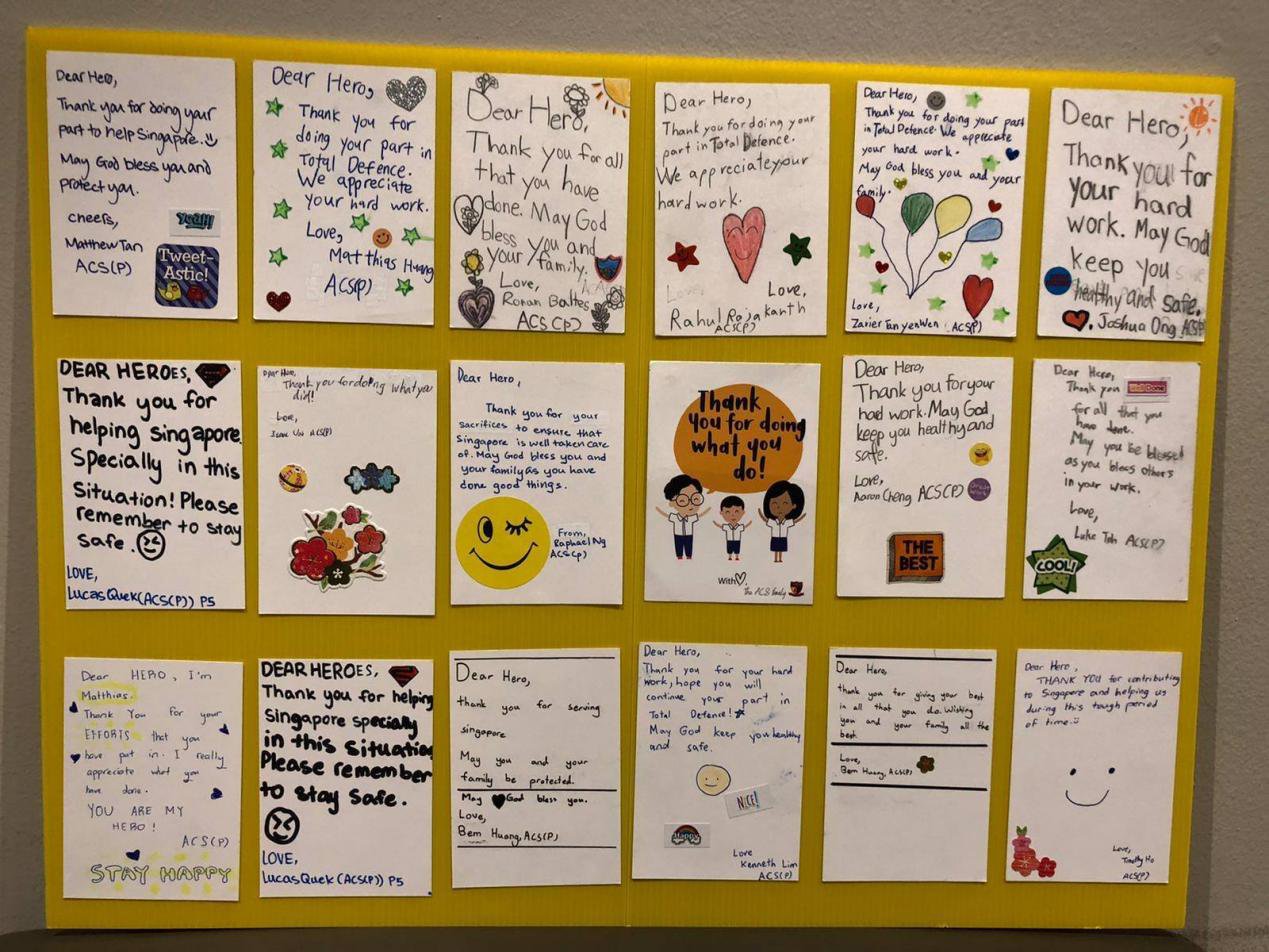 Dear Hero,
Thank you for doing your
part to help Singapore.
May God bless you and
protect you.
cheers,
Matthew Tan
ACS(P)
YEAH!
Tweet-
Astic!
Dear Hero,
Thank you for
doing your part in
Total Defence.
We appreciate
your hard work.
Love,
Matthias Huang
ACS(P)
Dear Hero,
Thank you for all
that you have
done. May God
bless you and
your family.
Love,
Ronan Baltes
ACS(P)
Dear Hero,
Thank you for doing your
part in Total Defence.
We appreciate your
hard work.
Love,
Love,
Rahul Rajakanth
ACS(P)
Dear Hero,
Thank you for doing your part
in Total Defence. We appreciate
your hard work.
May God bless you and your
family.
Love,
Zavier Tan yen Wen ACS(P)
Dear Hero,
Thank you for
your hard
work. May God
keep you
healthy and safe.
Joshua Ong ACS(P)
DEAR HEROES,
Thank you for
helping Singapore.
Specially in this
Situation! Please
remember to stay
safe.
LOVE,
Lucas Quek (ACS(P)) P5
Dear Hero,
Thank you for doing what you
did!
Love,
ACS(P)
Dear Hero,
Thank you for your
sacrifices to ensure that
Singapore is well taken care
of. May God bless you and
your family as you have
done good things.
From,
Raphael Ng
ACS(P)
Thank
you for doing
what you
do!
With
The ACS family
Dear Hero,
Thank you for your
hard work. May God
keep you healthy and
safe.
Love,
Aaron Cheng ACS(P)
THE
BEST
Dear Hero,
Thank you
Well Done
for all that you
have done.
May you be blessed
as you bless others
in your work.
Love,
Luke Toh ACS(P)
COOL!
Dear HERO, I'm
Matthias.
Thank You for your
EFFORTS that you
have put in. I really
appreciate what you
have done.
YOU ARE MY
HERO!
ACS(P)
STAY HAPPY
DEAR HEROES,
Thank you for helping
Singapore specially
in this situation
Please remember
to stay safe.
LOVE,
Lucas Quek (ACS(P)) P5
Dear Hero,
thank you for serving
singapore
May you and your
family be protected.
May God bless you.
Love,
Bem Huang, ACS(P)
Dear Hero,
Thank you for your hard
work, hope you will
continue your part in
Total Defence!
May God keep you healthy
and safe.
NICE!
Happy
Love
Kenneth Lim
ACS(P)
Dear Hero,
thank you for giving your best
in all that you do. Wishing
you and your family all the
best.
Love,
Bem Huang, ACS(P)
Dear Hero,
THANK YOU for contributing
to Singapore and helping us
during this tough period
of time.
Love,
Timothy Ho
ACS(P)